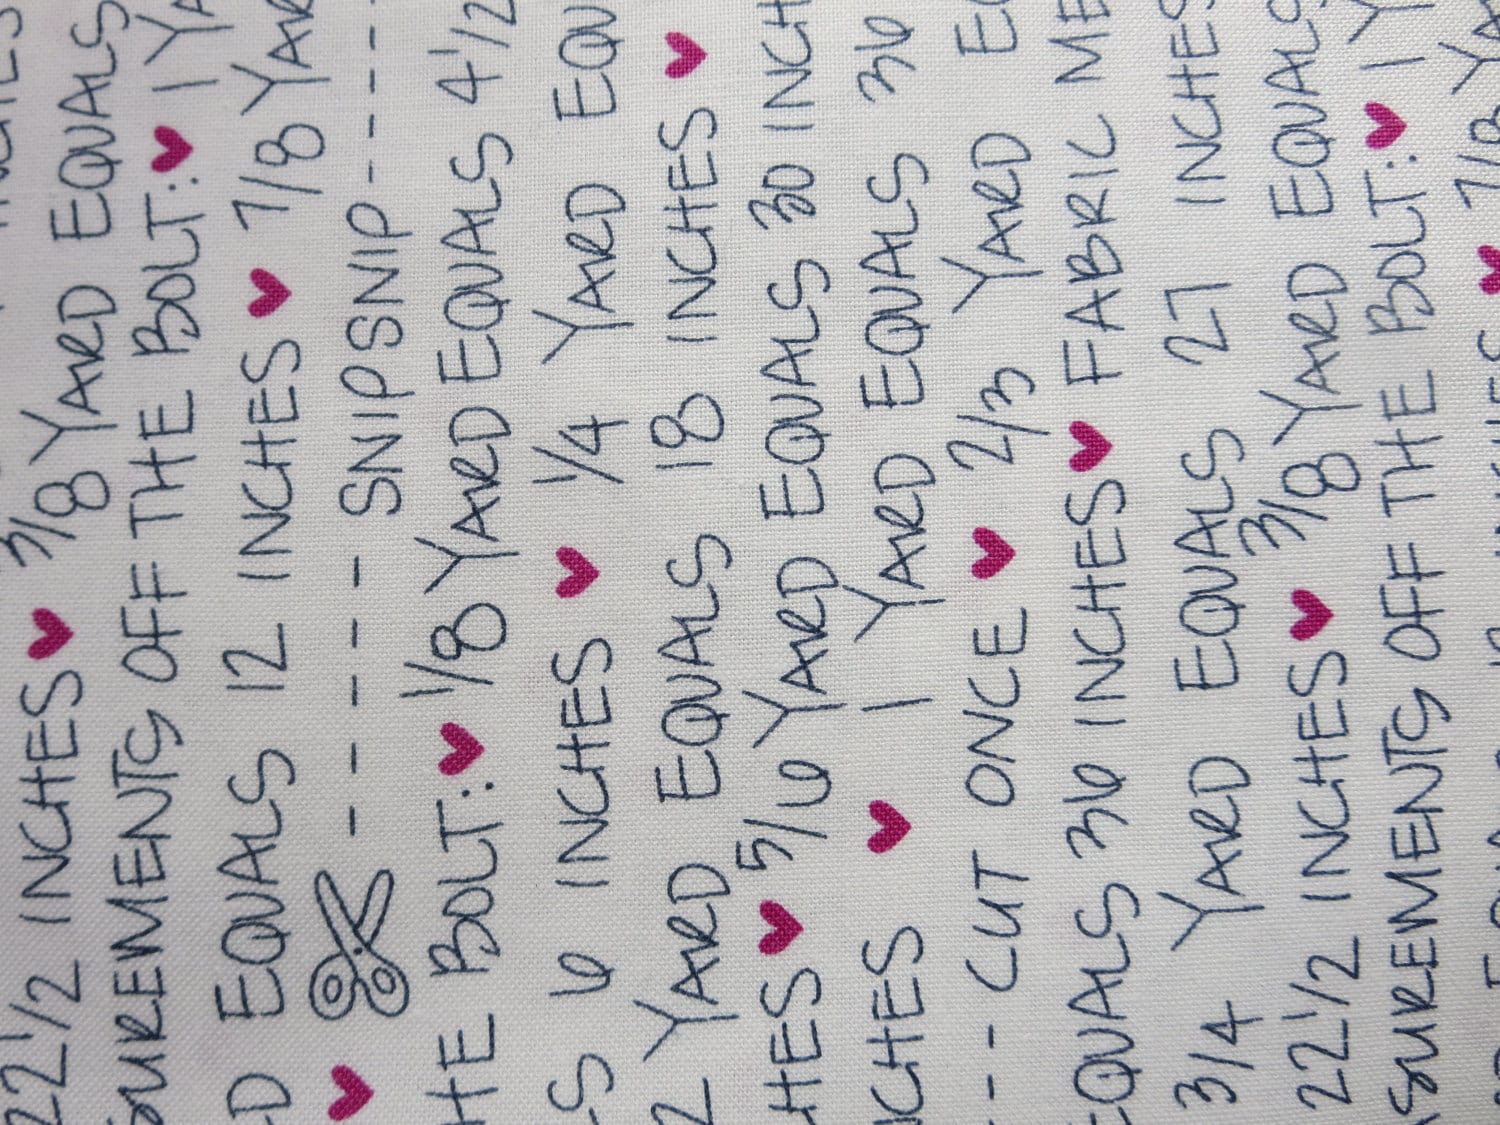 22 1/2 INCHES ♥ 3/8 YARD EQUALS
SUREMENTS OFF THE BOLT: ♥ 1 YA
D EQUALS 12 INCHES ♥ 7/8 YAR
♥ - - - - SNIPSNIP - - - -
HE BOLT: ♥ 1/8 YARD EQUALS 4 1/2
LS 6 INCHES ♥ 1/4 YARD EQU
2 YARD EQUALS 18 INCHES ♥
HES ♥ 5/6 YARD EQUALS 30 INCH
NCHES ♥ 1 YARD EQUALS 36
- - CUT ONCE ♥ 2/3 YARD E
EQUALS 36 INCHES ♥ FABRIC ME
3/4 YARD EQUALS 27 INCHES
22 1/2 INCHES ♥ 3/8 YARD EQUALS
ASUREMENTS OFF THE BOLT: ♥ 1 Y
♥ 7/8 YA